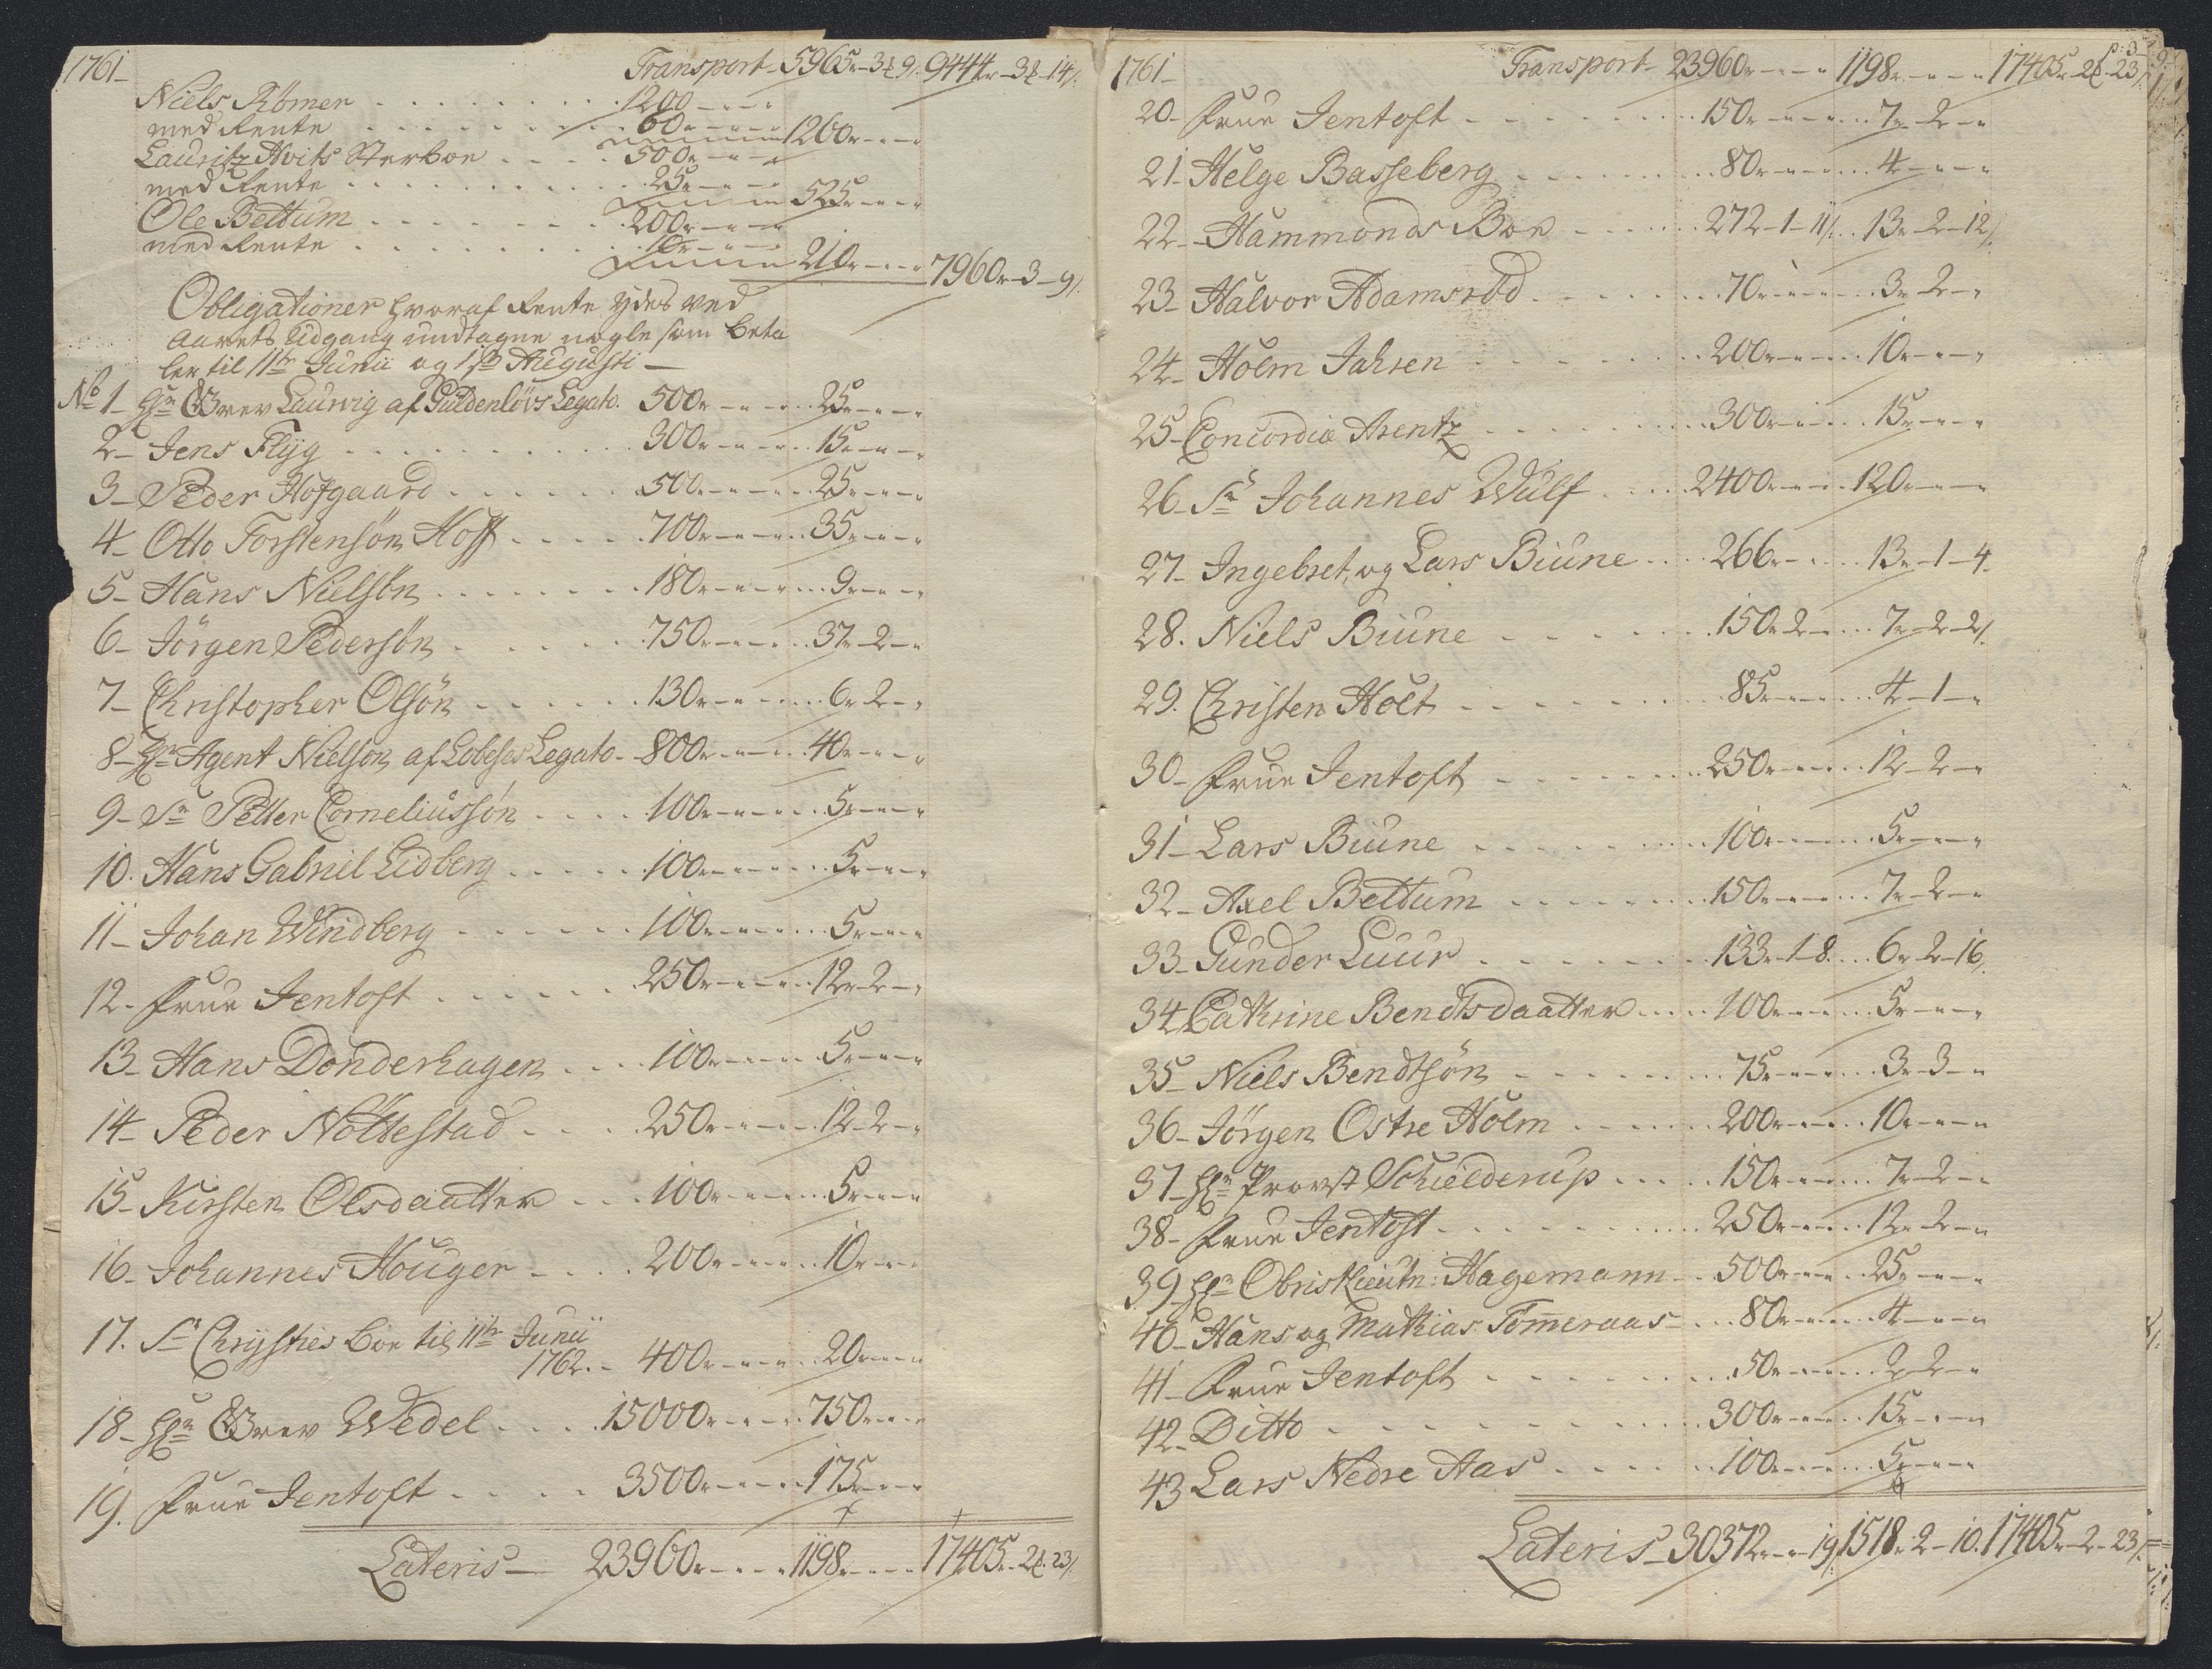 1761
Transport 5965r-3-9 9444r-3-14
Niels Rømer 1200
med Rente 60 1260
Lauritz Hvits Sterboe 500
med Rente 25 525
Ole Bettum 200
med Rente 10 210 7960-3-9
Obligationer hvoraf Rente ydes ved
Aarets Udgang undtagne nogle som beta
ler til 11te Junii og 1ste Augusti
No 1 Hr Grev Laurvig af Güldenløvs Legato 500 25
2 Jens Flyg 300 15
3 Peder Hofgaard 500 25
4 Otto Torstensøn Hoff 700 35
5 Hans Nielsøn 180 9
6 Jörgen Pedersøn 750 37-2
7 Christopher Olsøn 130 6-2
8 Hr Agent Nielson af Lobeses Legato 800 40
9 Sr Petter Corneliussøn 100 5
10. Hans Gabriel Lidberg 100 5
11 Johan Windberg 100 5
12 Frue Jentoft 250 12-2
13 Hans Donderhagen 100 5
14 Peder Nöttestad 250 12-2
15 Kirsten Olsdaatter 100 5
16 Johannes Houger 200 10
17. Sr Chrysties Boe til 11te Junii
1762. 400 20
18 Hr Grev Wedel 15000 750
19. Frue Jentoft 3500 175
Lateris 23960 1198 17405-2-23
1761
p: 3
Transport 23960 1198 17405-2-23
20 Frue Jentoft 150 7-2
21 Helge Basseberg 80 4
22 Hammonds Boe 272-1-11 13-2-12
23 Halvor Adamsröd 70 3-2
24 Holm Jahren 200 10
25 Concordia Arentz 300 15
26 Sr Johannes Wulf 2400 120
27 Ingebret, og Lars Biune 266 13-1-4
28. Niels Biune 150-2 7-2-2
29. Christen Holt 85 4-1
30 Frue Jentoft 250 12-2
31 Lars Biune 100 5
32 Axel Bettum 150 7-2
33 Gunder Luur 133-1-8 6-2-16
34 Cathrine Bendtsdaatter 100 5
35 Niels Bendtsøn 75 3-3
36 Jörgen Ostre Holm 200 10
37 Hr Provst Schielderup 150 7-2
38 Frue Jentoft 250 12-2
39 Hr Obristlieutn: Hagemann 500 25
40 Hans og Mathias Tomeraas 80 4
41 Frue Jentoft 50 2-2
42 Ditto 300 15
43 Lars Nedre Aas 100 5
Lateris 30372-19 1518-2-10 17405-2-23